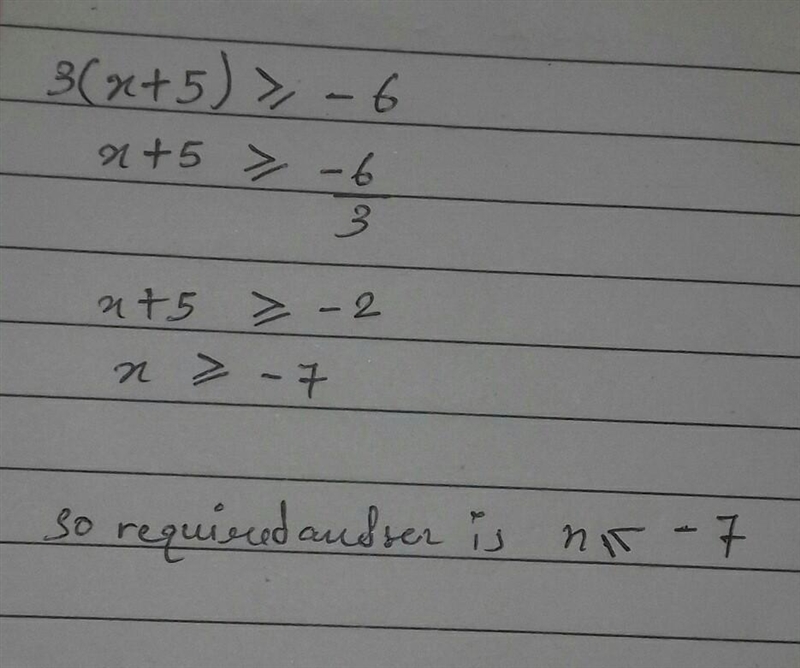 3(x+5) ⩾ -6
x+5 ⩾ -6/3
x+5 ⩾ -2
x ⩾ -7
so required answer is x ⩽ -7